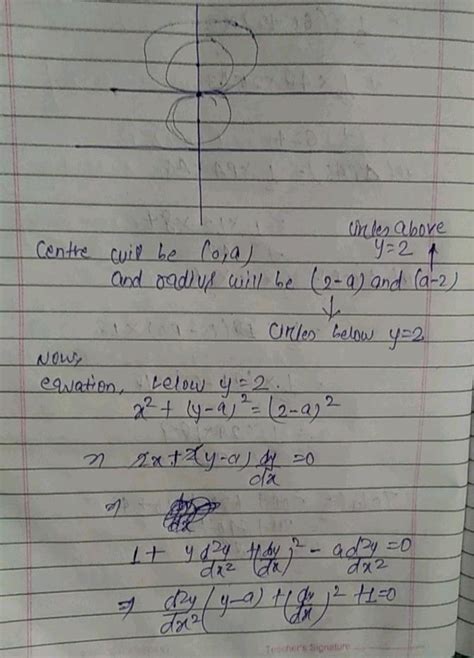 circles above
y=2
Centre will be (0,a)
and radius will be (2-a) and (a-2)
↓
circles below y=2
Now,
equation, below y=2.
x² + (y-a)² = (2-a)²
⇒ 2x + 2(y-a) dy/dx = 0
⇒
1 + y d²y/dx² + (dy/dx)² - a d²y/dx² = 0
⇒ d²y/dx² (y-a) + (dy/dx)² + 1 = 0
Teacher's Signature